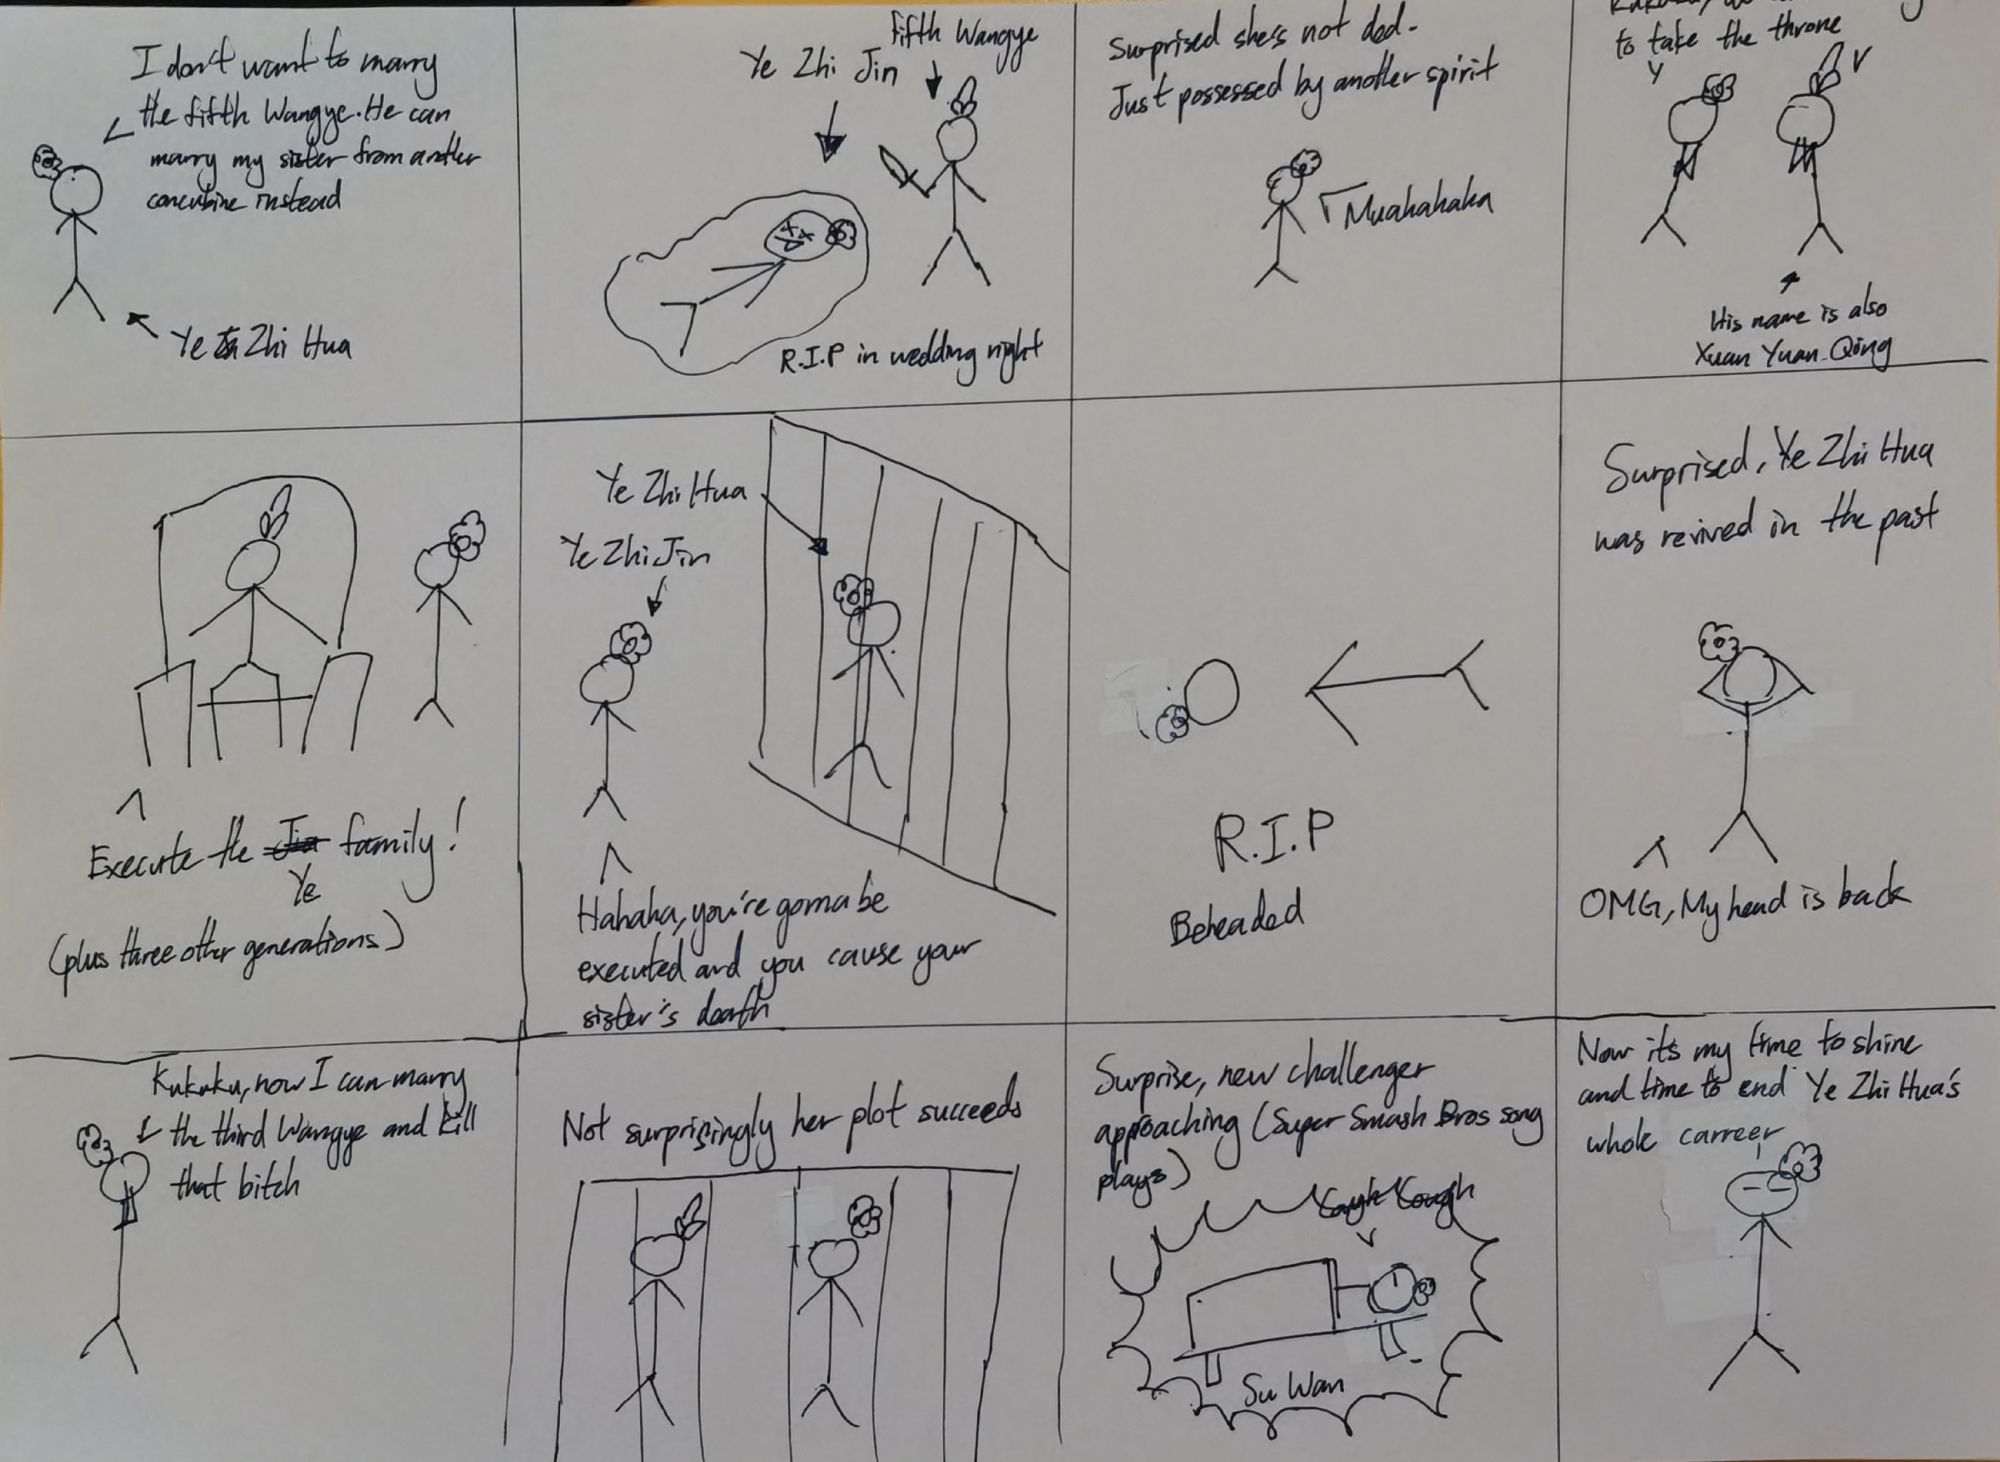 I don't want to marry
the fifth Wangye. He can
marry my sister from another
concubine instead
Ye Zhi Hua
fifth Wangye
Ye Zhi Jin
R.I.P in wedding night
Surprised she's not ded.
Just possessed by another spirit
Muahahaha
to take the throne
His name is also
Xuan Yuan Qing
Execute the Jin family!
Ye
(plus three other generations)
Ye Zhi Hua
Ye Zhi Jin
Hahaha, you're gonna be
executed and you cause your
sister's death
R.I.P
Beheaded
Surprised, Ye Zhi Hua
was revived in the past
OMG, My head is back
Kukuku, now I can marry
the third Wangye and kill
that bitch
Not surprisingly her plot succeeds
Surprise, new challenger
approaching (Super Smash Bros song
plays)
Cough Cough
Su Wan
Now its my time to shine
and time to end Ye Zhi Hua's
whole carreer